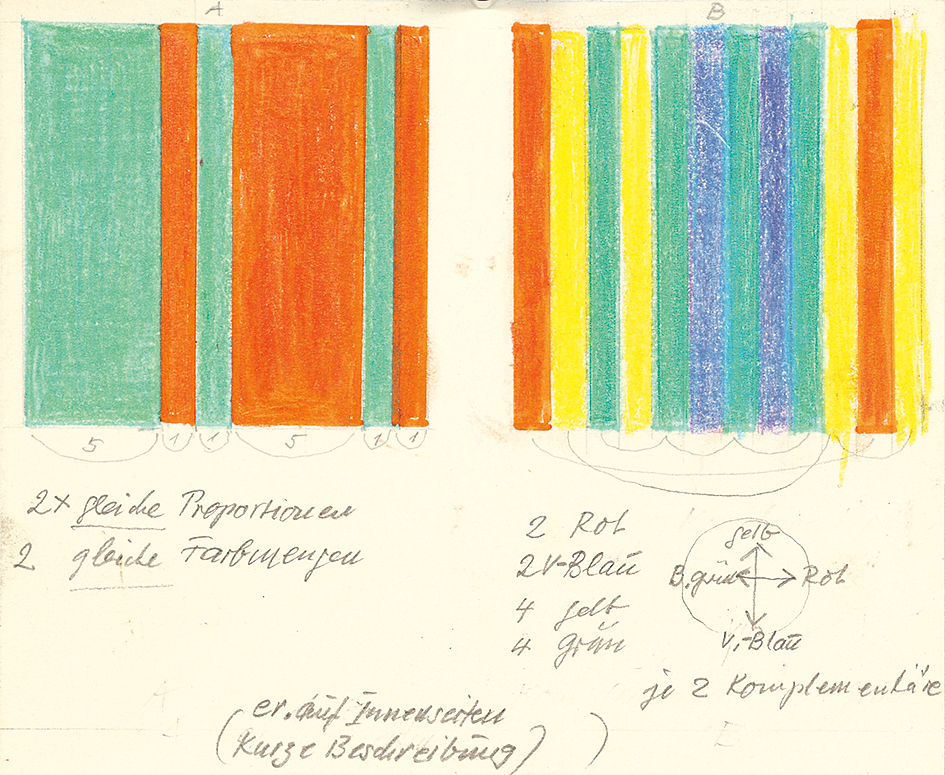 A
B
5 1 1 5 1 1
2x gleiche Proportionen
2 gleiche Farbmengen
2 Rot
2 V-Blau
4 gelb
4 Grün
gelb
B.grün Rot
V.-Blau
je 2 Komplementäre
(er. auf Innenseiten
(Kurze Beschreibung) )